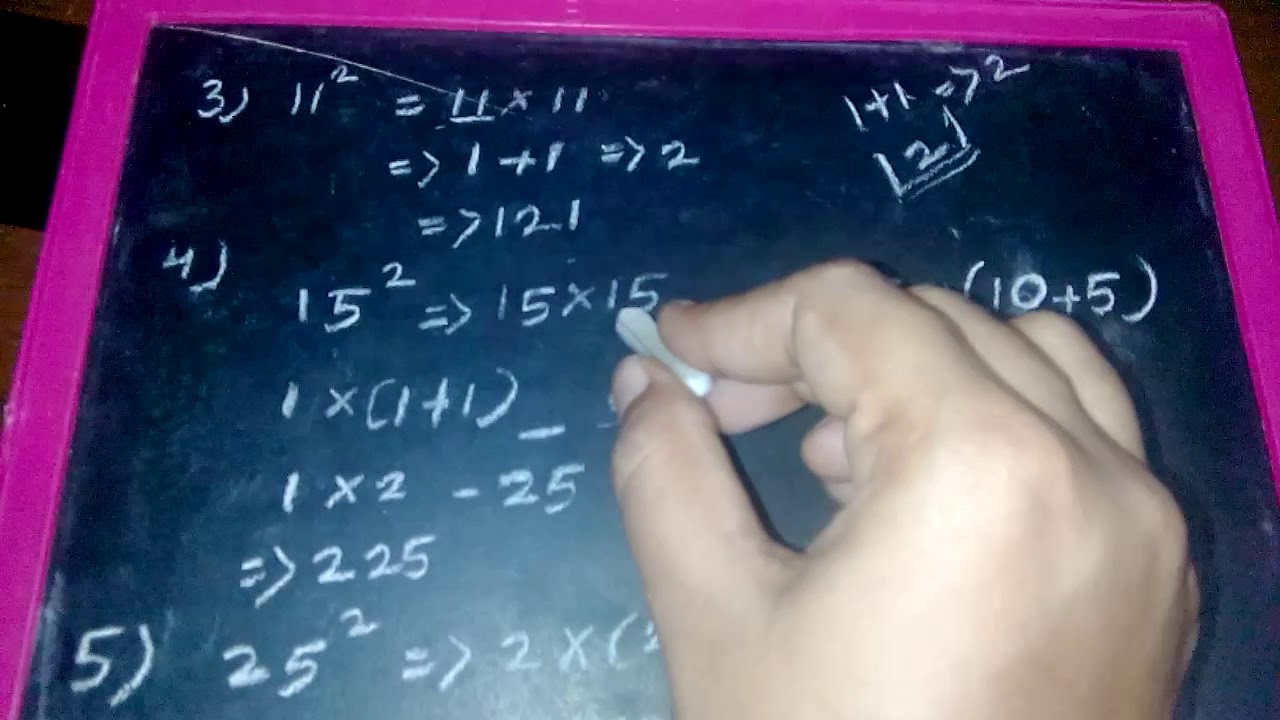 3) 11² = 11 × 11
=> 1 + 1 => 2
=> 121
1+1 => 2
121
4)
15² => 15 × 15
(10+5)
1 × (1+1) _
1 × 2 - 25
=> 225
5) 25² => 2 × (